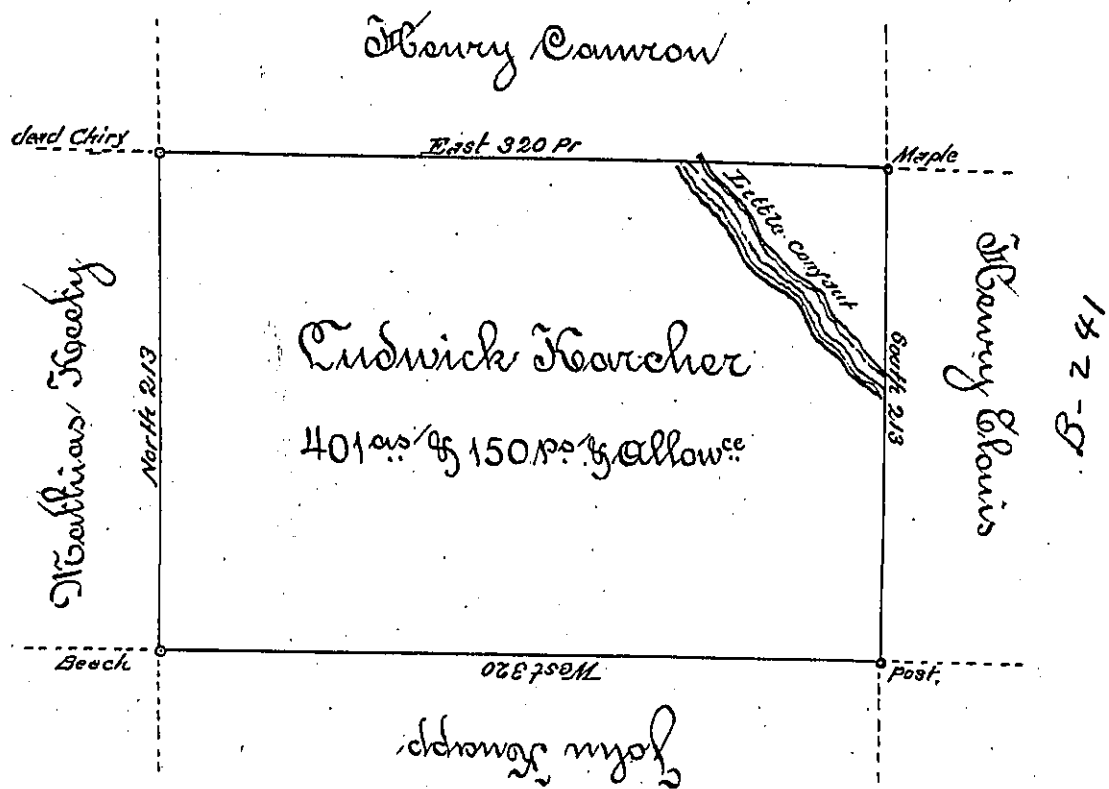 Henry Camron
dead Chiry
East 320 Pr
Maple
Little conyaut
Mathias Keely
North 213
Ludwick Karcher
401 as & 150 ps & Allowce
South 213
Henry Clouis
B-241
Beach
West 320
post.
John Knapp